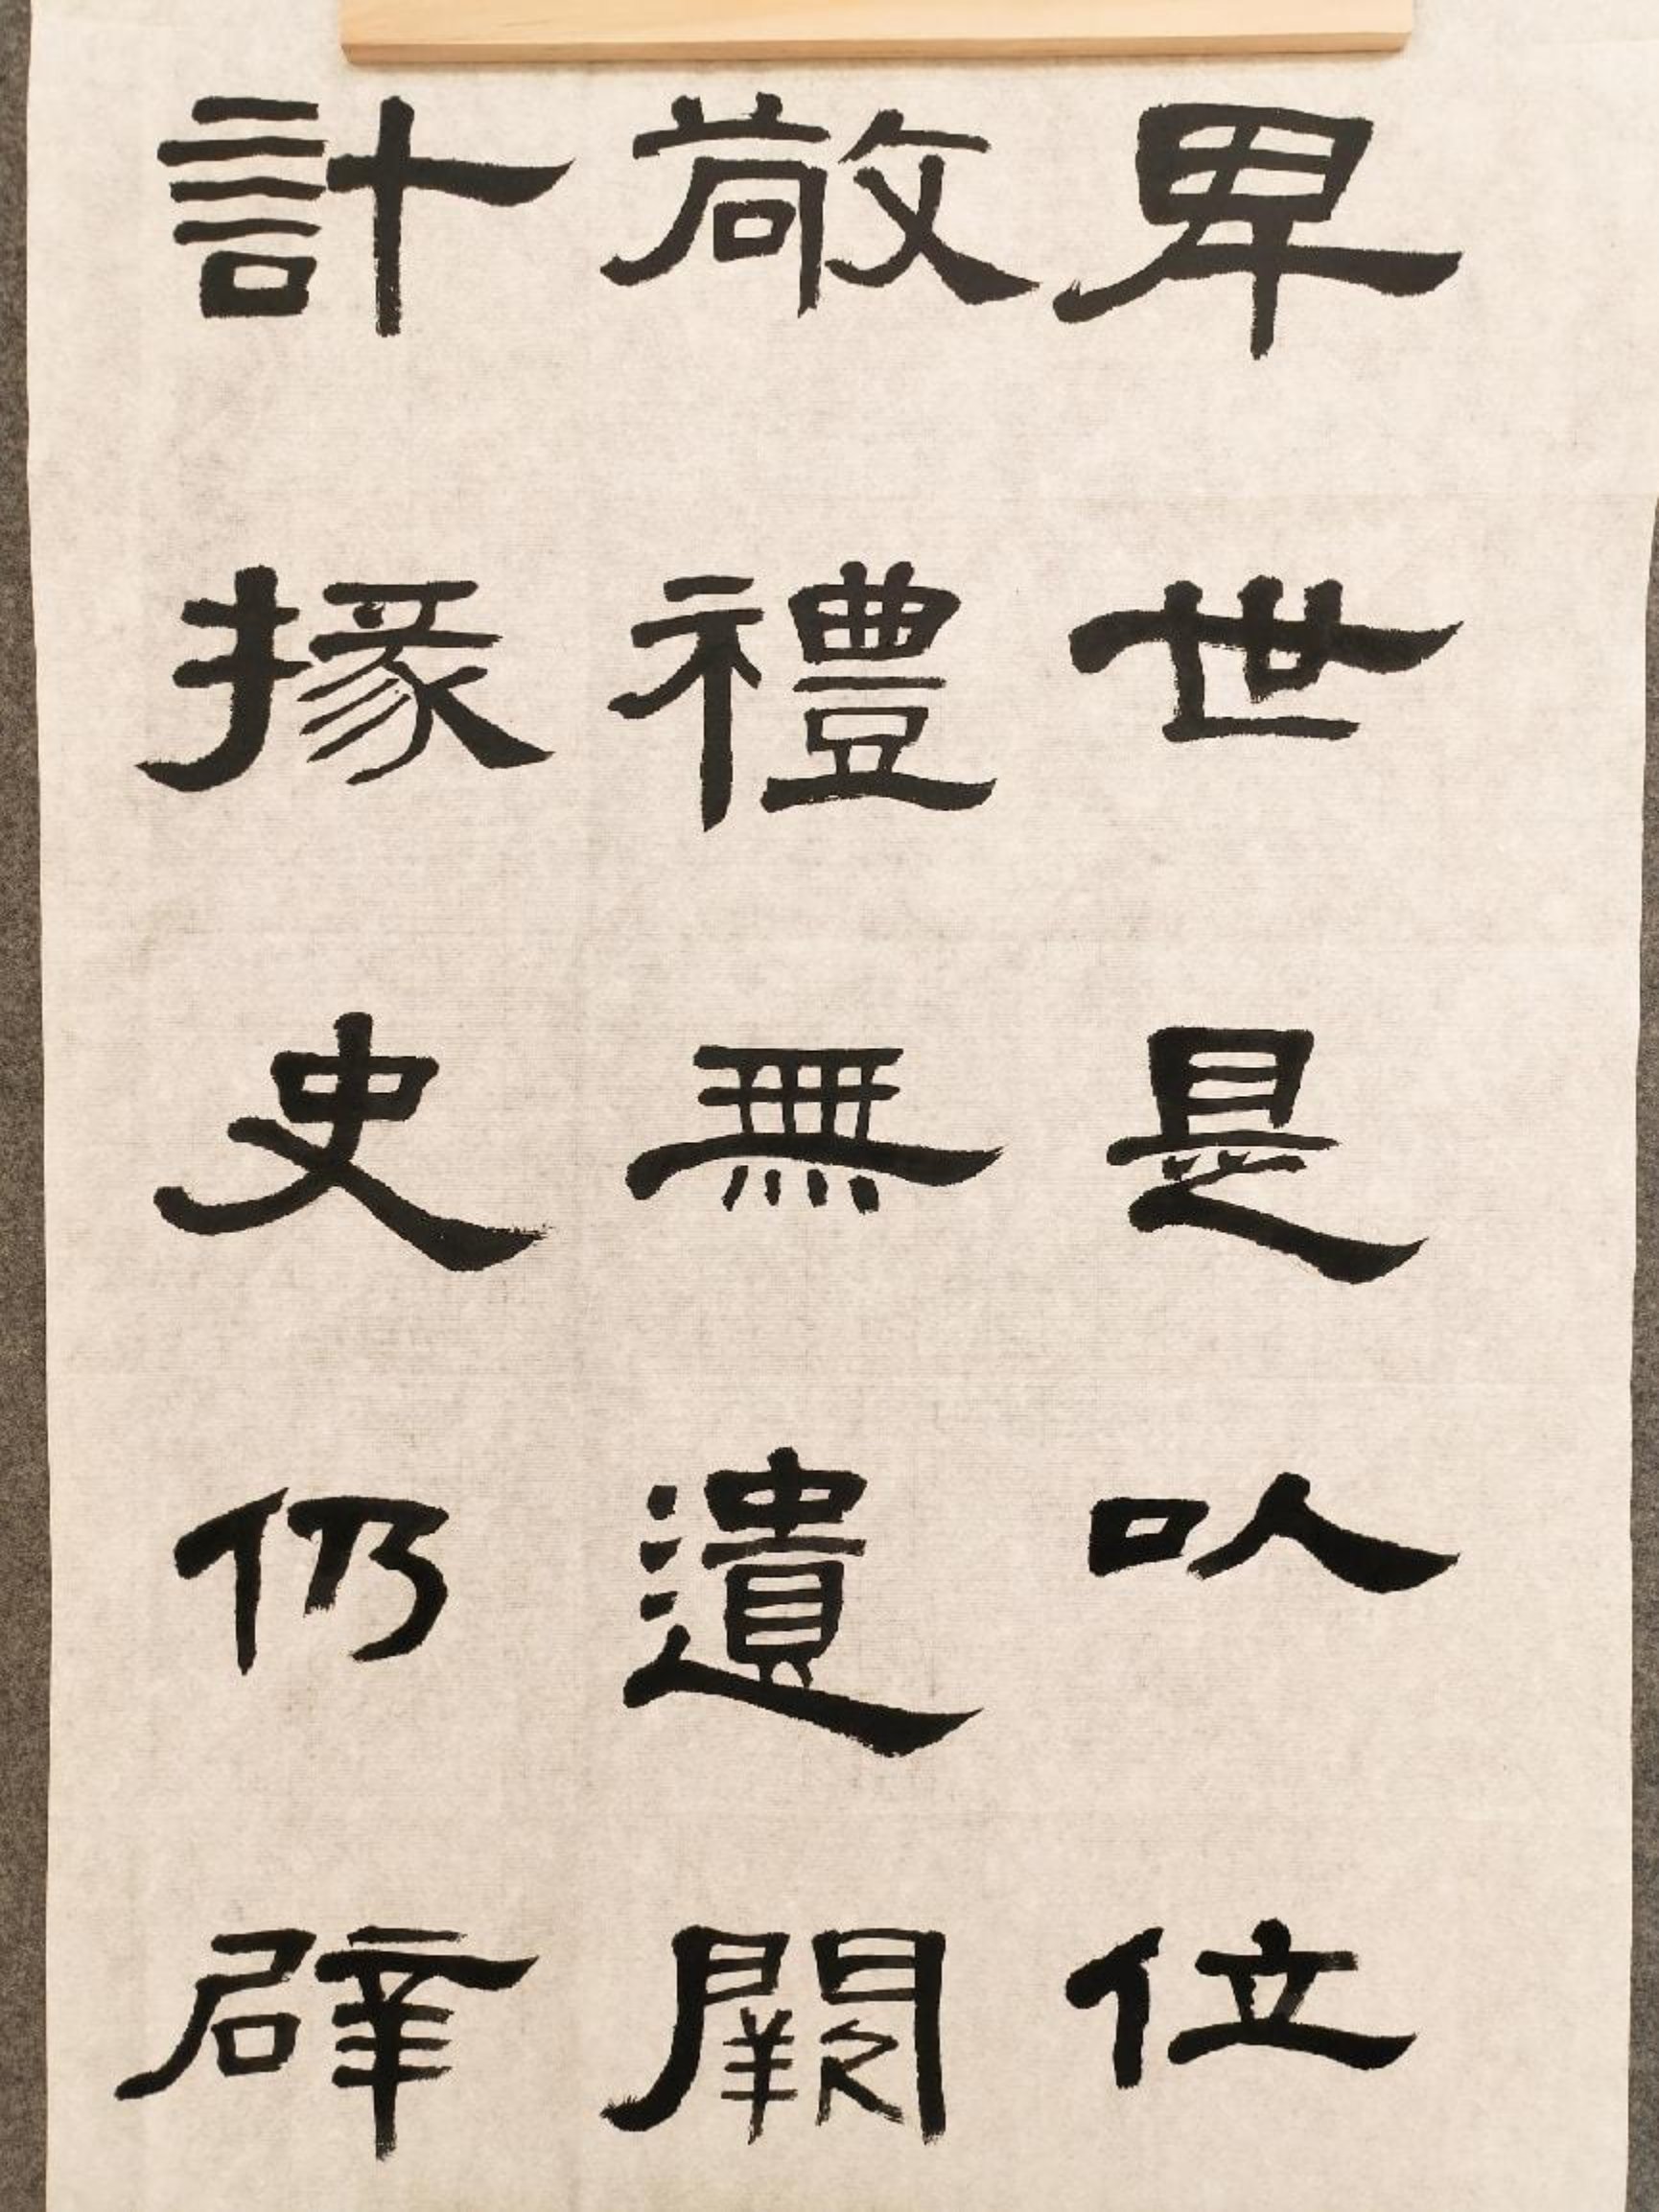 早世是以位
敬禮無遺闕
計掾史仍辟